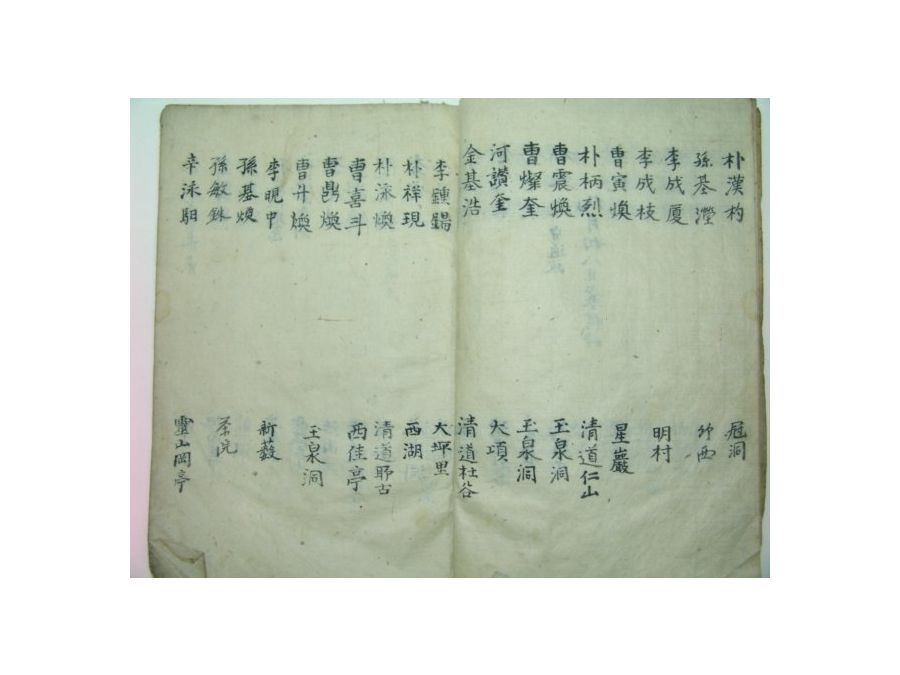 朴漢杓 冠洞
孫基瀅 竹西
李成厦
李成枝 明村
曺寅煥 星巖
朴柄烈 清道仁山
曺震煥 玉泉洞
曺燦奎 玉泉洞
河讚金 大項
金基浩 清道杜谷
李鍾鍚 大坪里
朴祥現 西湖
朴泳煥 清道耶古
曺喜斗 西佳亭
曺鼎煥
曺斗煥 玉泉洞
李晛中 新藪
孫基煥
孫敏銖 茶院
辛泳馹 靈山岡亭